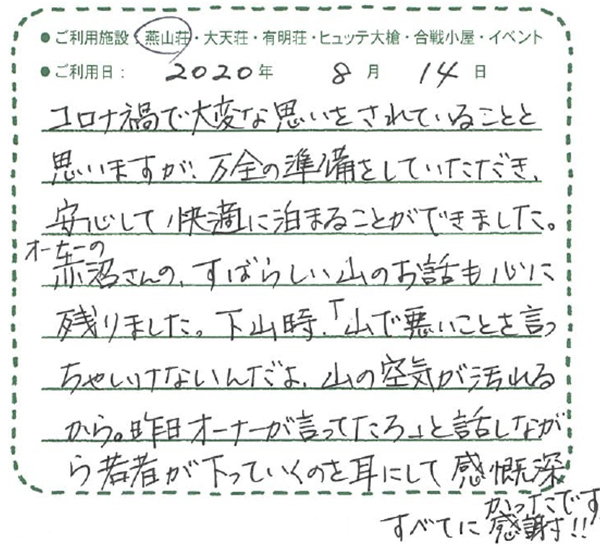 ●ご利用施設:燕山荘・大天荘・有明荘・ヒュッテ大槍・合戦小屋・イベント
●ご利用日: 2020年 8月 14日
コロナ禍で大変な思いをされていることと
思いますが、万全の準備をしていただき、
安心して快適に泊まることができました。
オーナーの
赤沼さんの、すばらしい山のお話も心に
残りました。下山時、「山で悪いことを言っ
ちゃいけないんだよ、山の空気が汚れる
から。昨日オーナーが言ってたろ」と話しなが
ら若者が下っていくのを耳にして感慨深
かったです
すべてに感謝!!